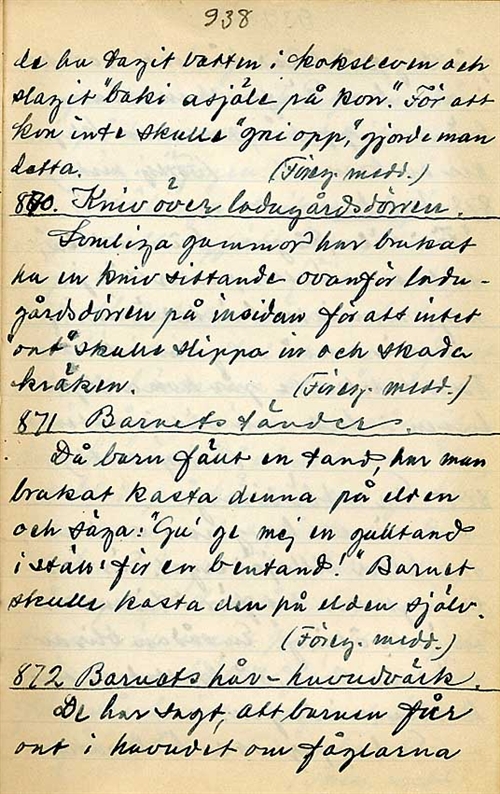 938
de ha tagit vatten i koksleven och
slagit "baki asjäle på kon." För att
kon inte skulle "gni opp," gjorde man
detta. (Föreg. medd.)
870. Kniv över ladugårdsdörren.
Somliga gummor har brukat
ha en kniv sittande ovanför ladu-
gårdsdörren på insidan för att intet
"ont" skulle slippa in och skada
kräken. (Föreg. medd.)
871 Barnets tänder.
Då barn fällt en tand, har man
brukat kasta denna på elden
och säga: "Gu' ge mej en gulltand
i ställ' för en bentand!" Barnet
skulle kasta den på elden själv.
(Föreg. medd.)
872 Barnets hår - huvudvärk.
De har sagt, att barnen får
ont i huvudet om fåglarna